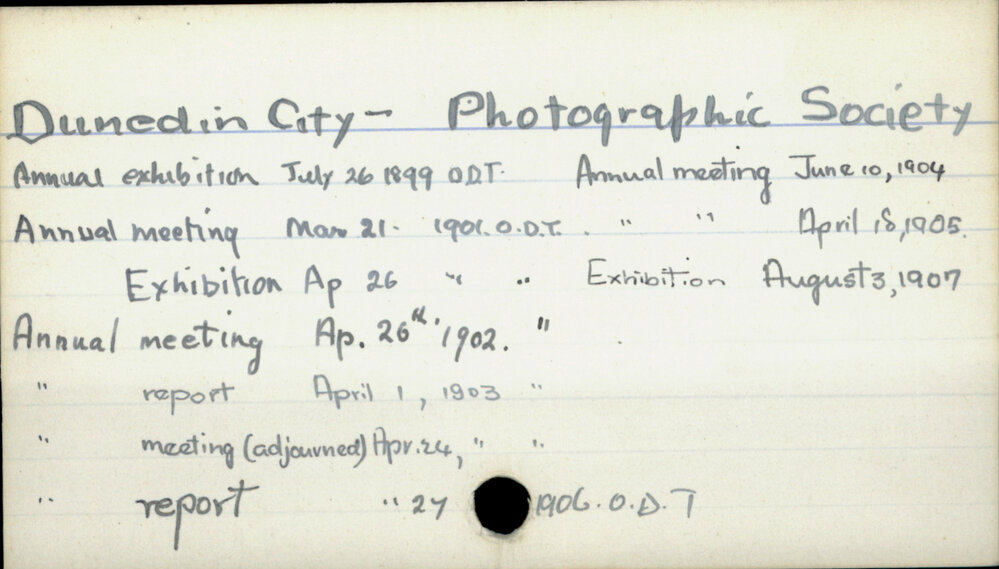 Dunedin City - Photographic Society
Annual exhibition July 26 1899 O.D.T. Annual meeting June 10, 1904
Annual meeting Mar 21. 1901. O.D.T. " " April 18, 1905.
Exhibition Ap 26 " " Exhibition August 3, 1907
Annual meeting Ap. 26th 1902. "
" report April 1, 1903 "
" meeting (adjourned) Apr. 24, " "
" report " 27 1906. O.D.T